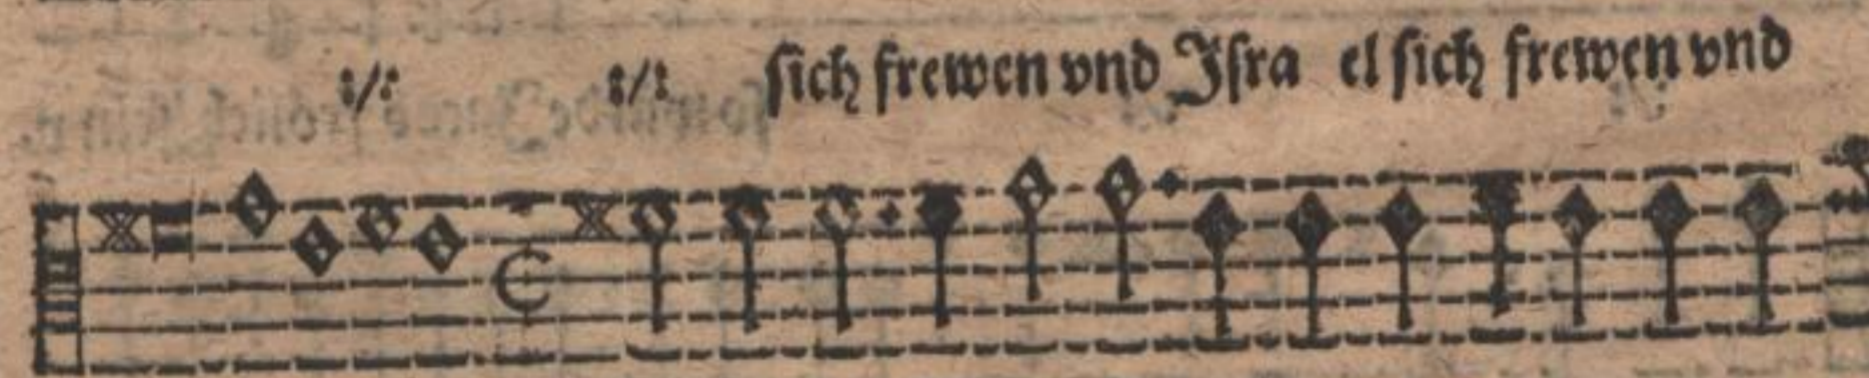 :/: :/: sich frewen vnd Jsra el sich frewen vnd